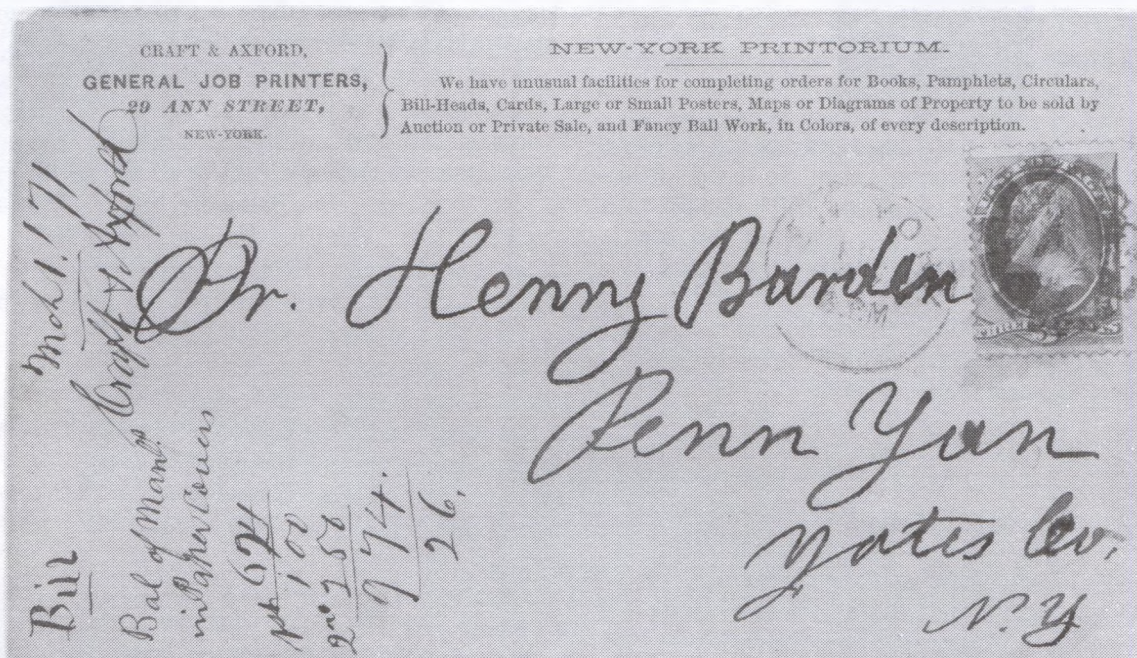 CRAFT & AXFORD,
GENERAL JOB PRINTERS,
29 ANN STREET,
NEW-YORK.
NEW-YORK PRINTORIUM.
We have unusual facilities for completing orders for Books, Pamphlets, Circulars,
Bill-Heads, Cards, Large or Small Posters, Maps or Diagrams of Property to be sold by
Auction or Private Sale, and Fancy Ball Work, in Colors, of every description.
Dr. Henry Barden
Penn Yan
Yates Co.
N.Y
Bill Mch 1. 171
Craft & Axford
Bal of
in Paper Covers
624
1 00
2nd 150
7 74.
26.